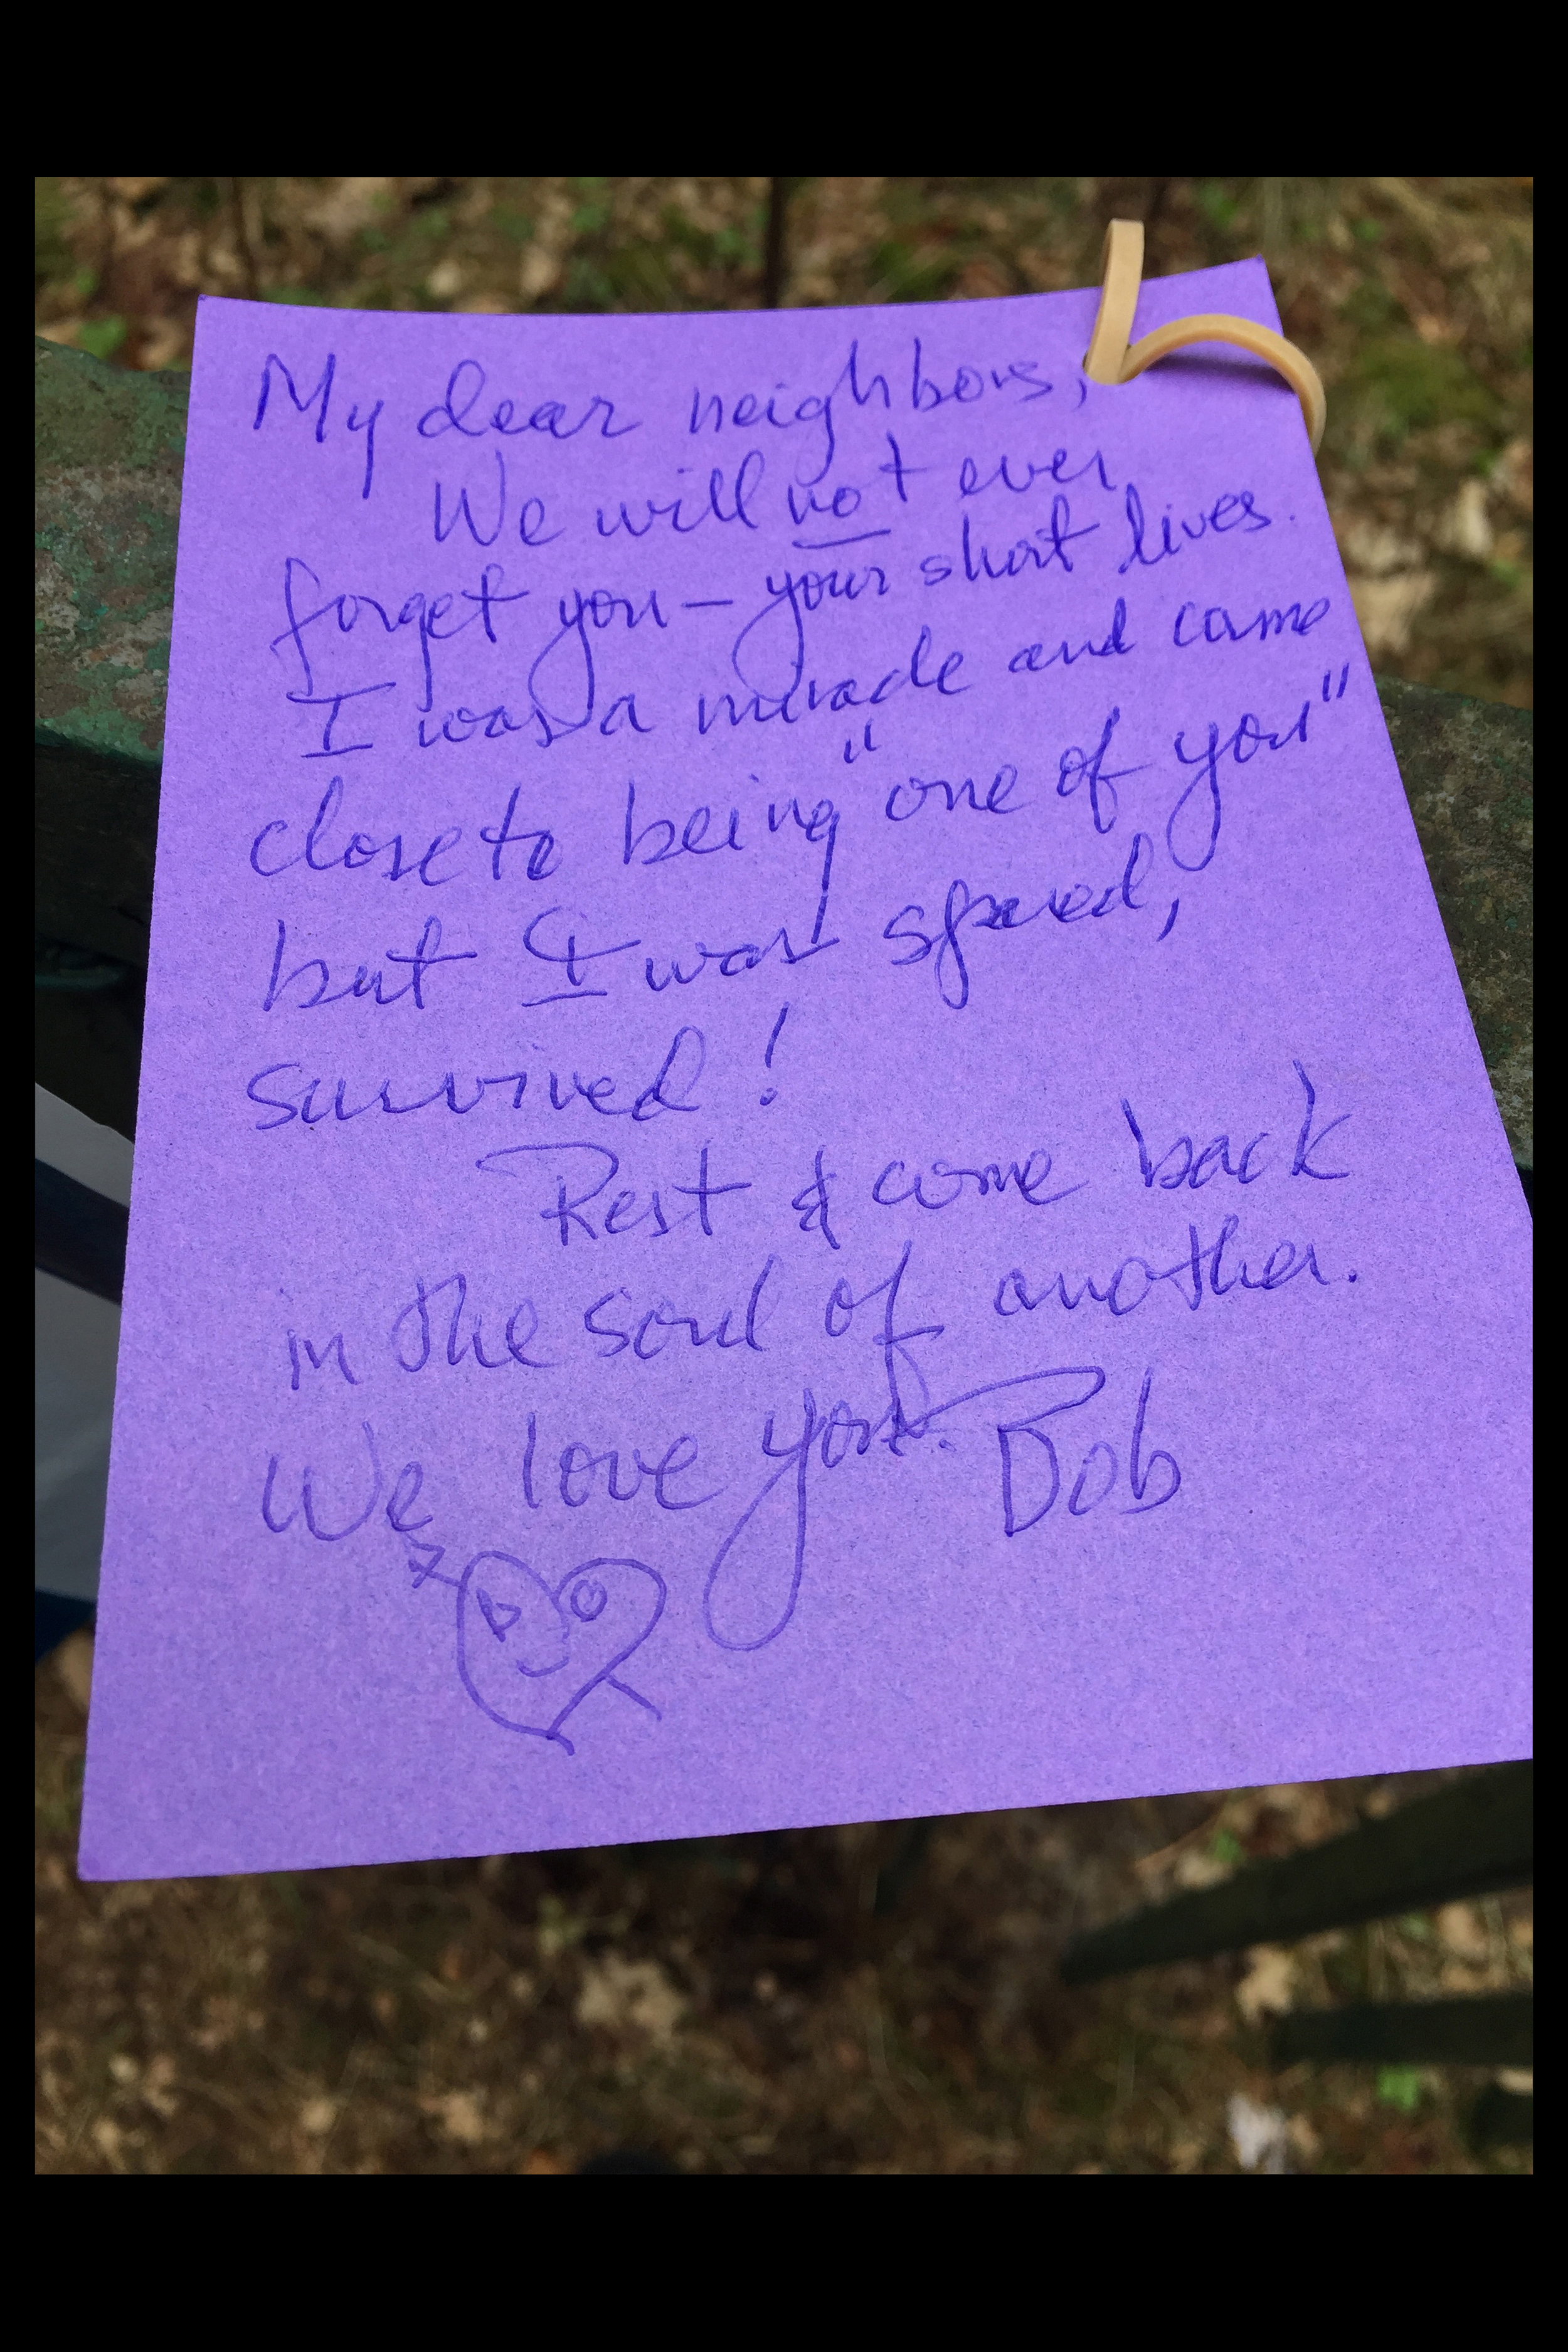 My dear neighbors,
We will not ever
forget you – your short lives.
I was a miracle and came
close to being "one of you"
but I was spared,
survived!
Rest & come back
in the soul of another.
We love you. Bob